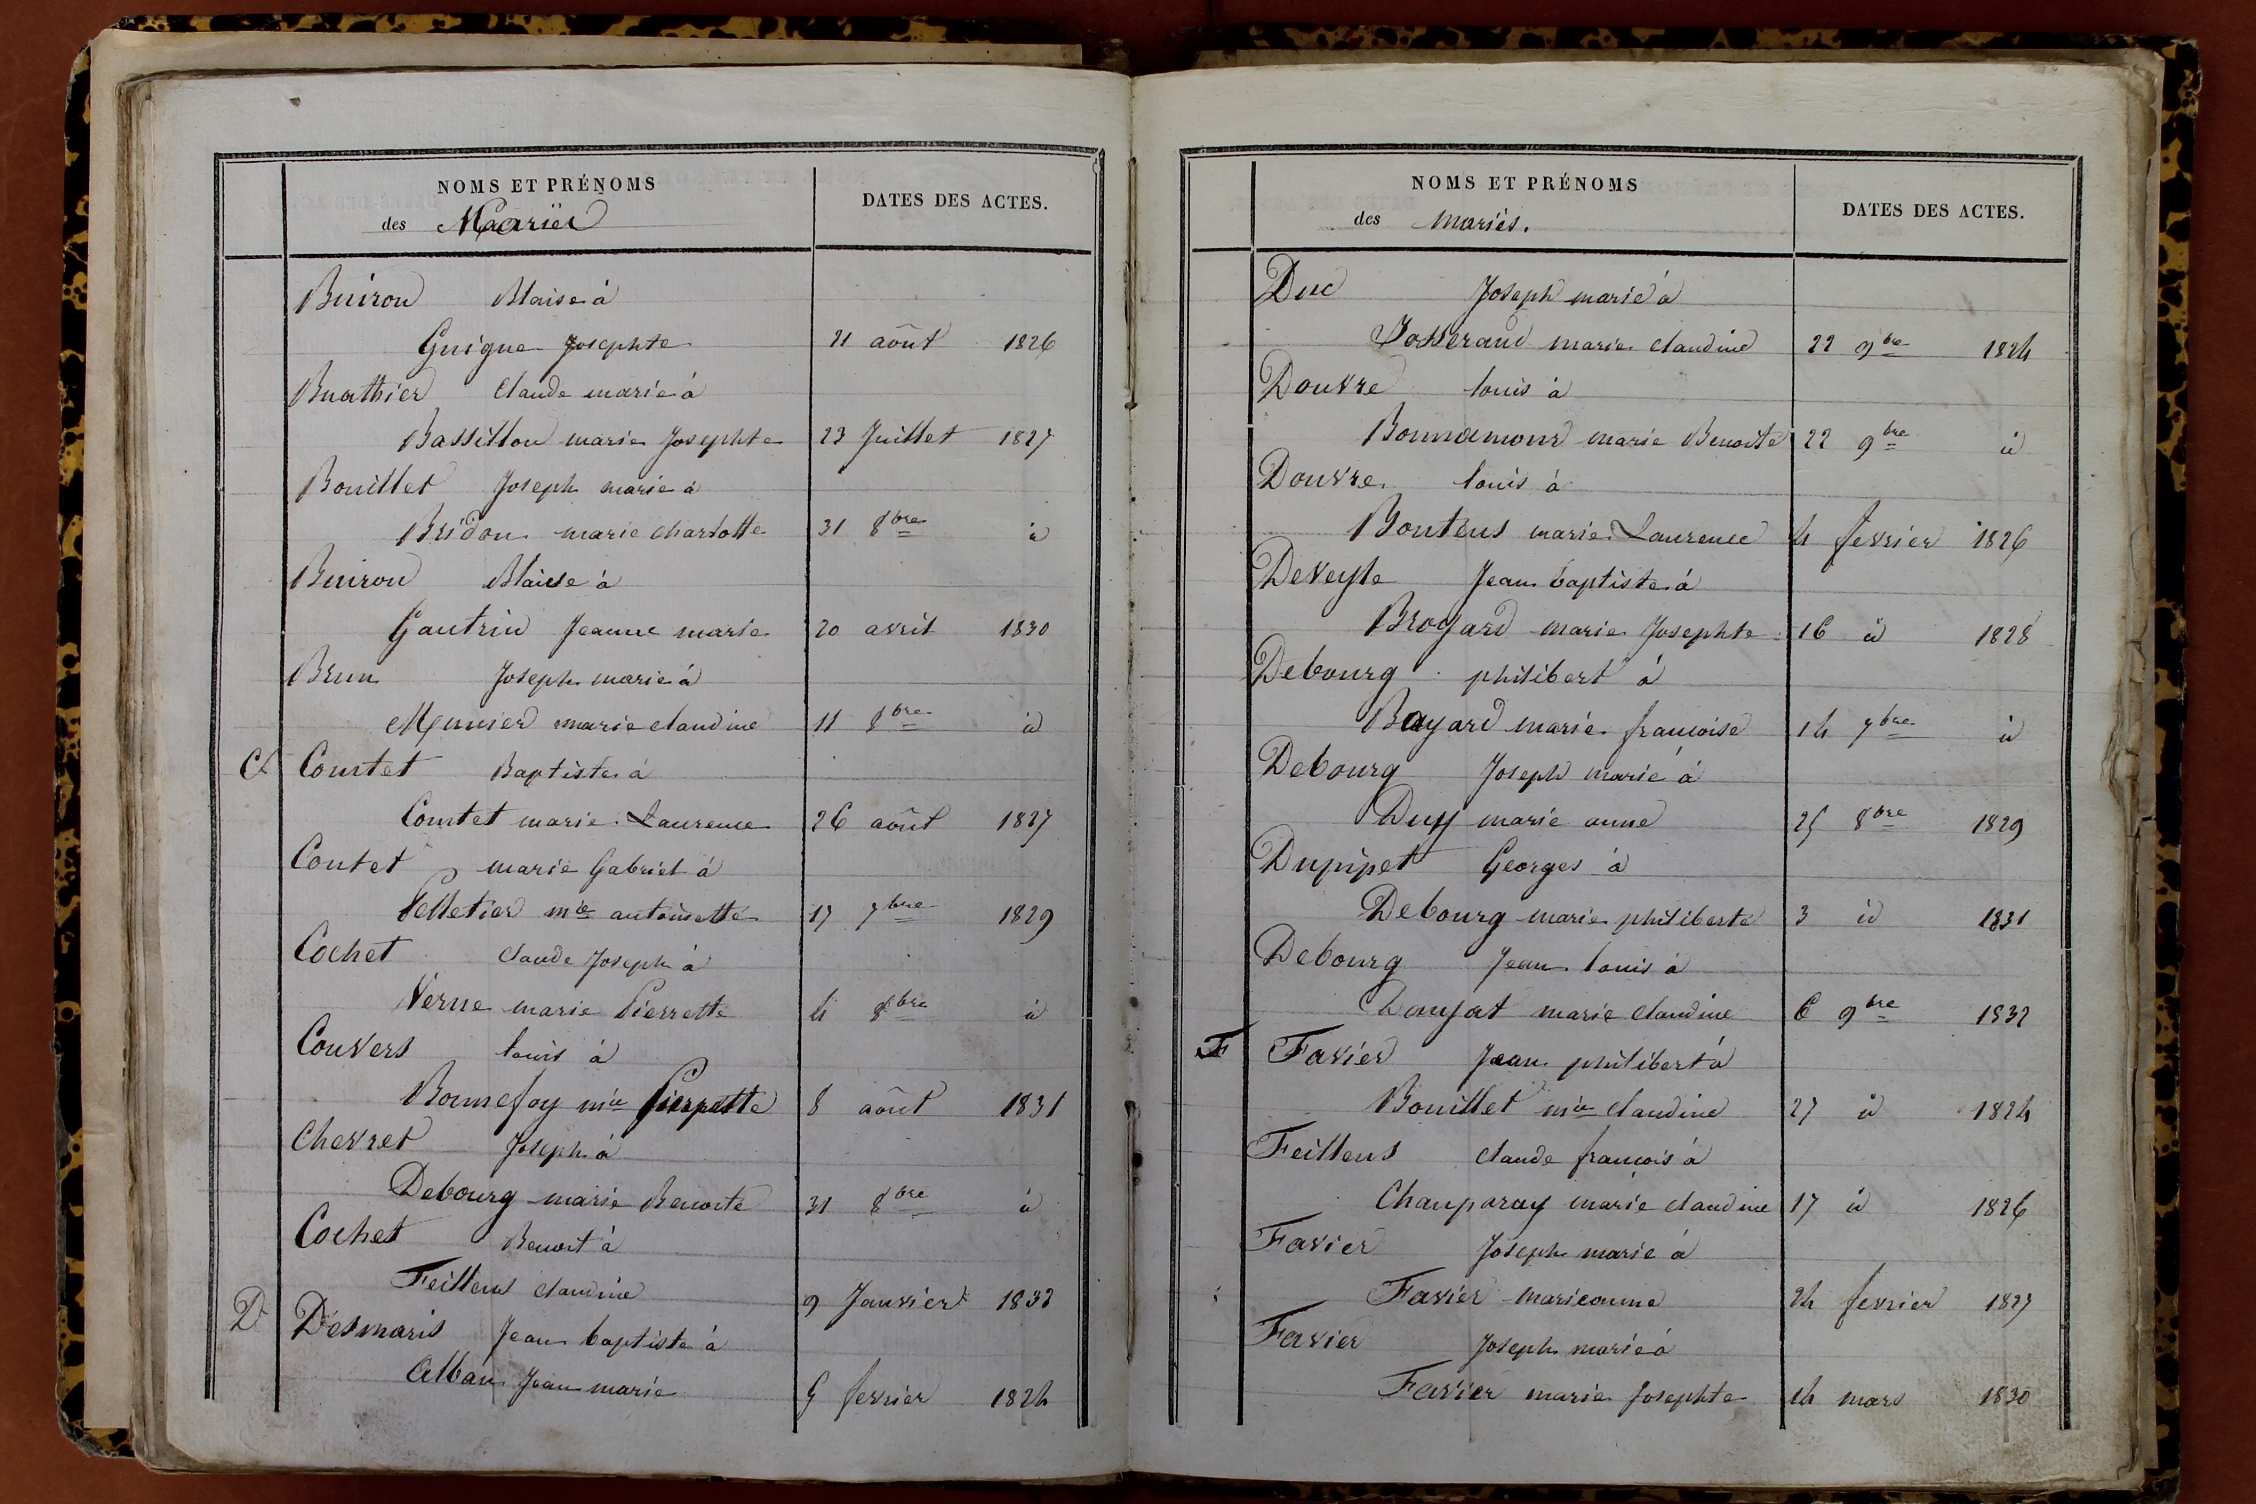 NOMS ET PRÉNOMS
des Mariés
DATES DES ACTES.
Buiron Blaise à
Guigue Josephte 21 août 1826
Buathier Claude marie à
Bassillon marie Josephte 23 Juillet 1827
Bouillet Joseph marie à
Bridon marie charlotte 31 8bre id
Buiron Blaise à
Gautrin Jeanne marie 20 avril 1830
Brun Joseph marie à
Munier marie claudine 11 8bre id
C Comtet Baptiste à
Comtet marie Laurence 26 août 1827
Contet marie Gabriel à
Pelletier mie antoinette 17 7bre 1829
Cochet claude Joseph à
Verne marie Pierrette 4 8bre id
Convers louis à
Bonnefoy mie Pierrette 8 août 1831
Chevret Joseph à
Debourg marie Benoite 31 8bre id
Cochet Benoit à
Feillens claudine 9 Janvier 1832
D Desmaris Jean baptiste à
Alban Jean marie 5 fevrier 1824
NOMS ET PRÉNOMS
des mariés.
DATES DES ACTES.
Duc Joseph marie à
Josserand marie claudine 22 9bre 1824
Douvre louis à
Bonnamour marie Benoite 22 9bre id
Douvre louis à
Boutens marie Laurence 4 fevrier 1826
Deveyle Jean baptiste à
Broyard marie Josephte 16 id 1828
Debourg philibert à
Bayard marie françoise 14 7bre id
Debourg Joseph marie à
Duy marie anne 25 8bre 1829
Dupipet Georges à
Debourg marie philiberte 3 id 1831
Debourg Jean louis à
marie claudine 6 9bre 1832
F Favier Jean philibert à
Bouillet mie claudine 27 id 1824
Feillens claude françois à
Chanparay marie claudine 17 id 1826
Favier Joseph marie à
Favier marieanne 24 fevrier 1827
Favier Joseph marie à
Favier marie Josephte 14 mars 1830